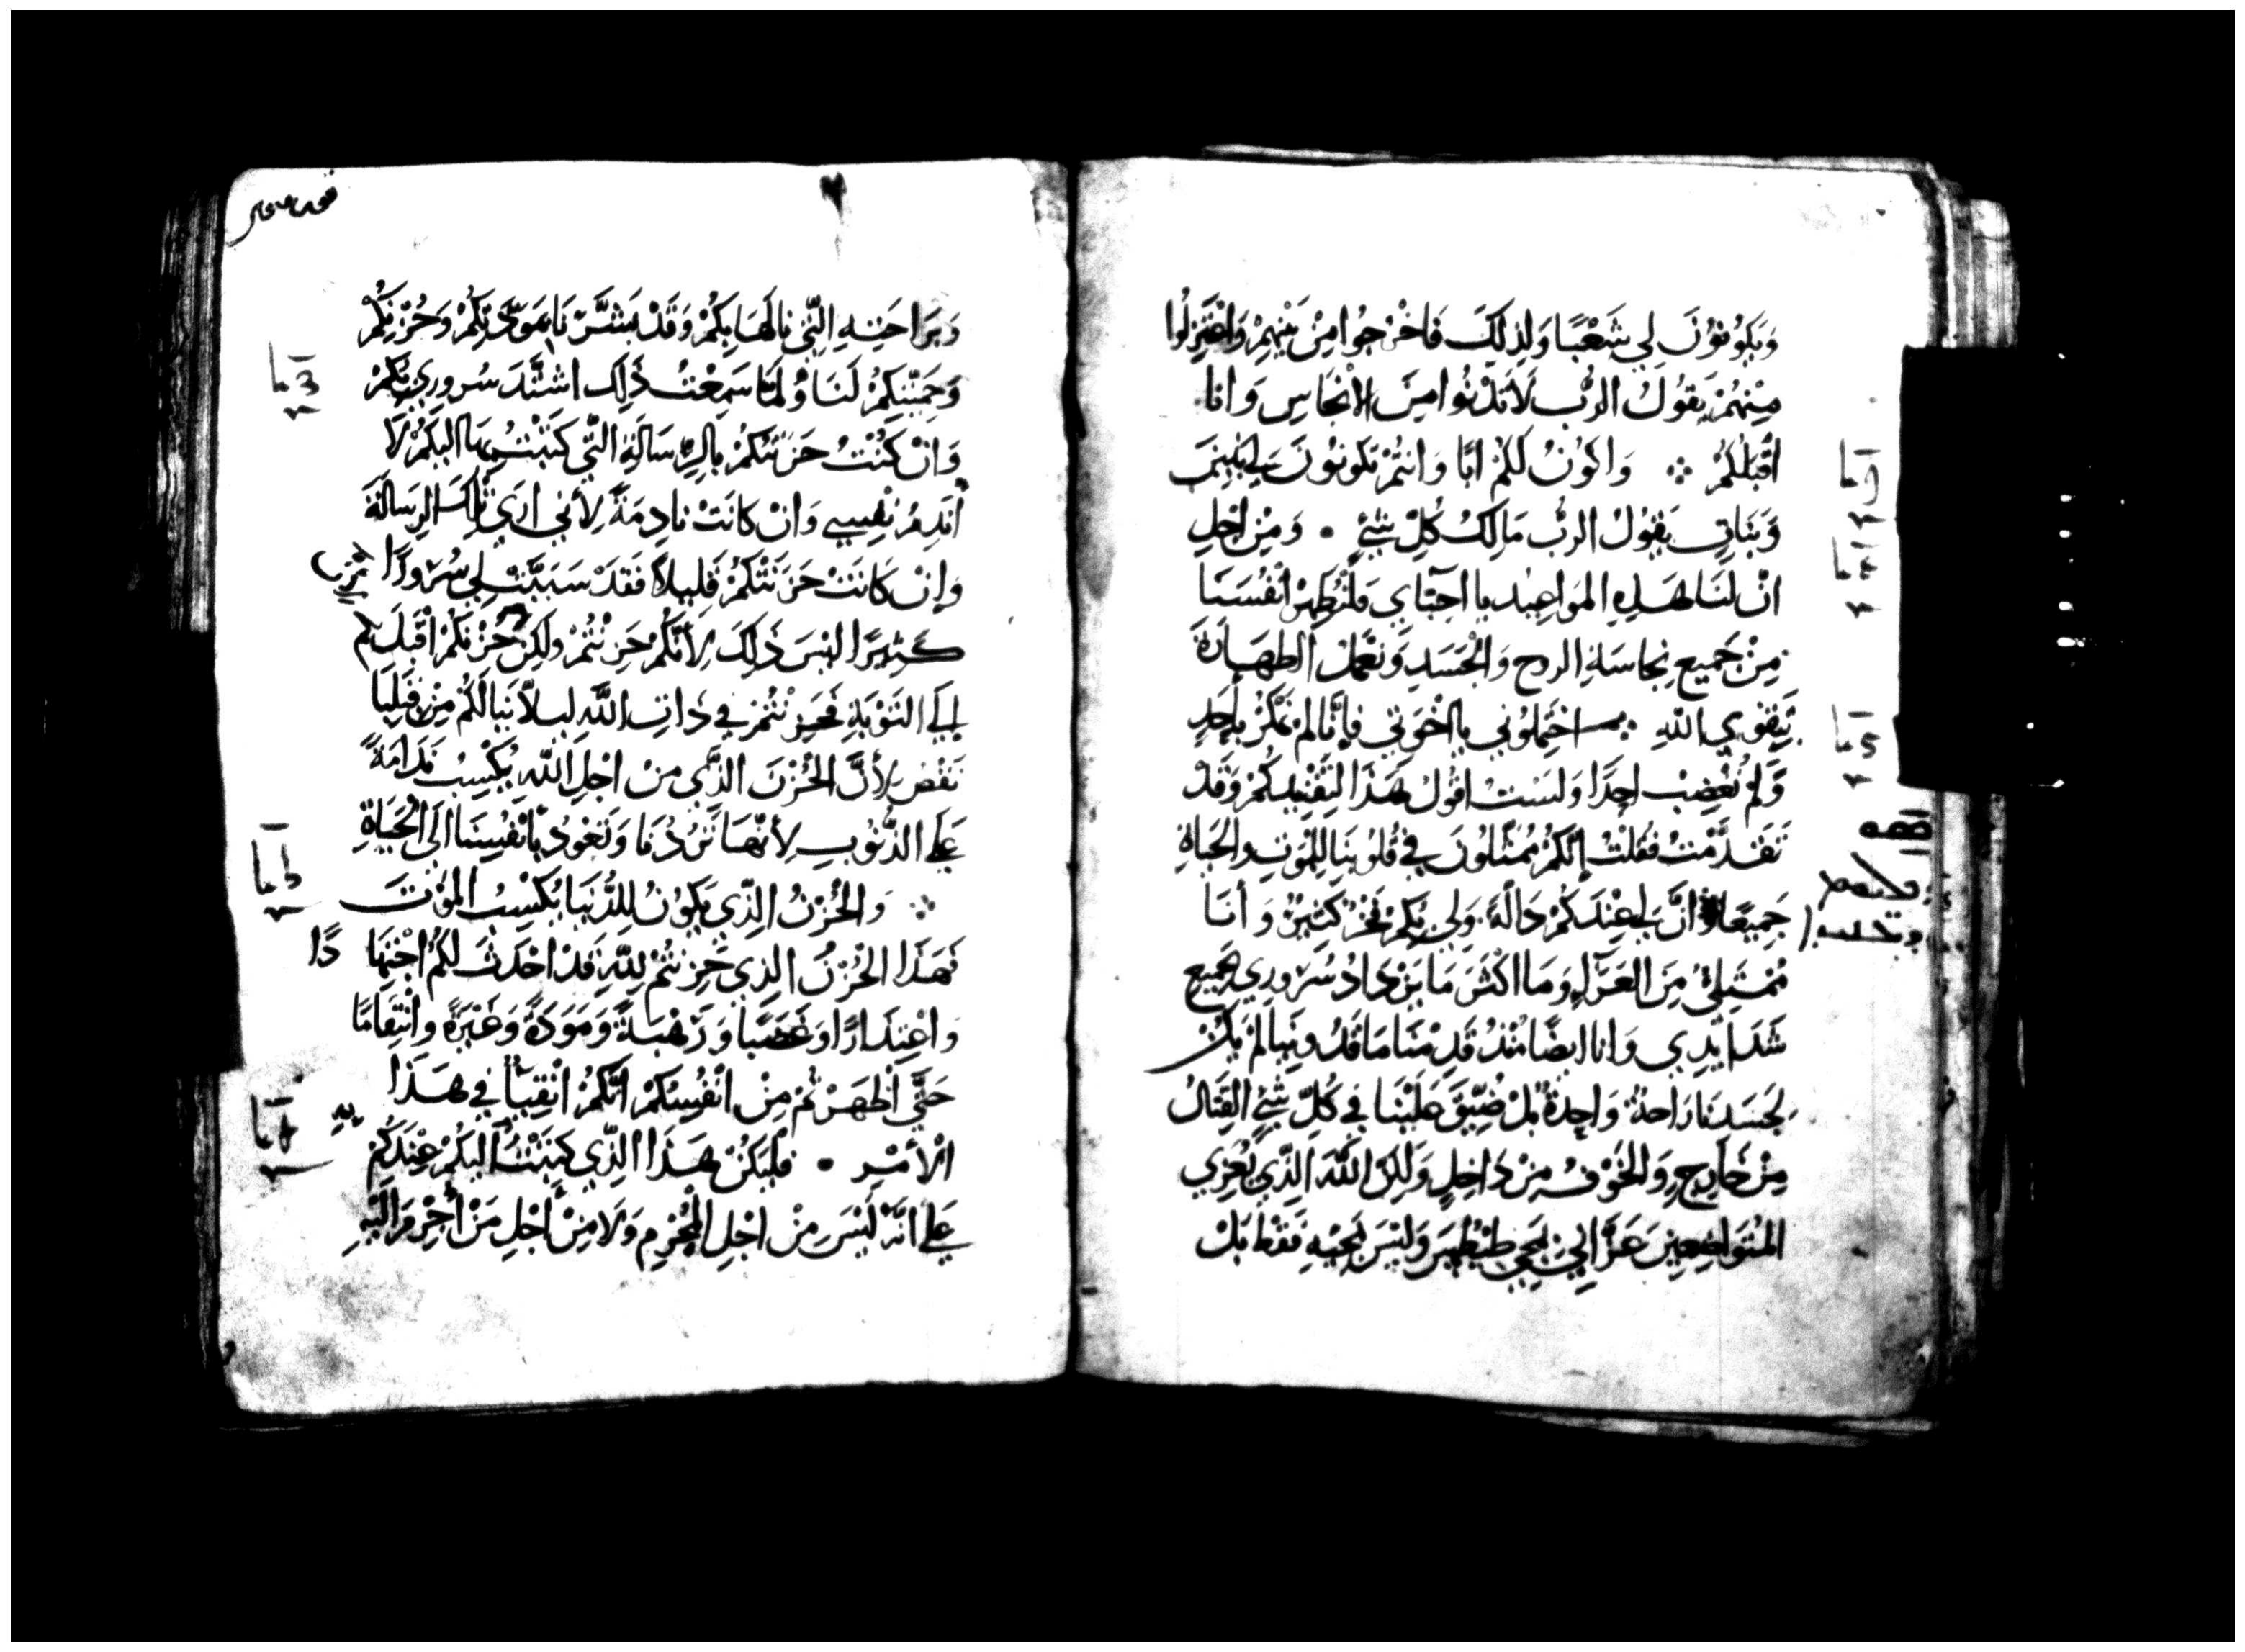 وَيَكُونُونَ لِي شَعْبًا وَلِذلِكَ فَاخْرُجُوا مِنْ بَيْنِهِمْ وَاعْتَزِلُوا
مِنْهُمْ يَقُولُ الرَّبُّ لَا تَدْنُوا مِنَ الأَنْجَاسِ وَانا
اقْبَلُكُمْ وَاكُونُ لَكُمْ ابًا وَانتُمْ تَكُونُونَ لِي بَنِين
وَبَنَاتٍ يَقُولُ الرَّبُّ مَالِكُ كُلِّ شَيْءٍ • وَمِنْ اجْلِ
انَّ لَنَا هَذِهِ المَوَاعِيد يا احِبَّاي فَلْنُطَهِرْ انْفُسَنَا
مِنْ جَمِيعِ نِجَاسَةِ الروح وَالْجَسَدِ وَنَعْمَل الطهَارَةَ
بِتَقْوَي اللهِ احْتَمِلُونِي يا اخْوَتِي فَإِنَّا لَمْ نَمْكُرْ بِأَحَدٍ
وَلَمْ نُغْضِبْ احِدًا وَلَسْتُ اقُولُ هَذَا لِتَفْنِيدكُمْ وَقَدْ
تَقَدَّمْتُ فَقُلْتُ إنَّكُمْ مُمَثَّلُونَ فِي قُلُوبِنَا لِلْمَوْتِ وَالْحَيَاةِ
جَمِيعًا انَّ لِي عِنْدَكُمْ دَالَّةً وَلِي بِكُمْ فَخْرٌ كَثِيرٌ وَ أنَا
مُمْتَلِيٌ مِنَ العَزَاءِ وَمَا اكْثَرَ مَا يَزْدَادُ سُرُورِي بِجَمِيعِ
شَدَايدِي وَانا ايضًا مُنْذُ قَدِمْنَا مَاقَدُونِيَا لَمْ يَكُنْ
لِجَسَدِنَا رَاحَةٌ وَاحِدَةٌ بَلْ ضُيِّقَ عَلَيْنَا فِي كُلِّ شَيْءٍ القِتَالُ
مِنْ خَارِجٍ وَالخَوْفُ مِنْ دَاخِلٍ وَلَكِنَّ اللَّهَ الَّذِي يُعَزِي
المُتَوَاضِعِينَ عَزَّانِي بِمَجِي طِيْطُسَ وَلَيْسَ بِمَجِيهِ فَقَط بَلْ
وَبِرَاحَتِهِ الَّتِي نالَهَا بِكُمْ وَقَدْ بَشَّرَنَا بِمَوَدَّتِكُمْ وَحُزْنِكُمْ
وَحَمِيَّتِكُمْ لَنَا وَلَمَّا سَمِعْتُ ذَلِك اشْتَدَ سُرُورِي بِكُمْ
وَانْ كُنْتُ حَزَنْتُكُمْ بِالرِّسَالَةِ الَّتِي كَتَبْتُ بِهَا الَيكُمْ لَا
أنَدِمُ نَفْسِي وَانْ كَانَتْ نادِمَةً لِأَنِي ارَي تِلْكَ الرِسَالَةَ
وَإنْ كَانَتْ حَزَنَتْكُمْ قَلِيلًا فَقَدْ سَبَبَّتْ لِي سُرُورًا
كَثِيرًا لَيْسَ ذَلِكَ لِأَنَّكُمْ حَزِنْتُمْ وَلَكِنَّ حُزْنَكُمْ اقْبَلَ بكم
إلَى التَوْبَةِ فَحَزِنْتُمْ فِي ذَاتِ اللَّهِ لِيلَّا يَنَالَكُمْ مِنْ قِبَلِنَا
نَقْصٌ لِأَنَّ الْحُزْنَ الذَّي مِنْ اجْلِ اللَّه يُكْسِبُ نَدَامَةً
عَلَى الذُّنُوبِ لِأَنَّهَا تَرُدُنا وَتَعُودُ بِأَنْفُسِنَا الَى الْحَيَاةِ
وَالْحُزْنُ الَّذِي يَكُونُ لِلدُّنيَا يُكْسِبُ المَوْتَ
فَهَذَا الحُزْنُ الَّذِي حَزِنْتُمْ لِلَّهِ قَدْ احْدَثَ لَكُمْ اجْتِهَادًا
وَاعْتِذَارًا وَغَضَبًا وَرَهْبَةً وَمَوَدَةً وَغَيْرَةً وَانْتِقَامًا
حَتَّي اظْهَرْتُمْ مِنْ انْفُسِكُمْ انَّكُمْ انْقِيَآ فِي هَذَا
الْأَمْرِ • فَلْيَكُنْ هَذَا الَّذِي كَتَبْتُ الَيكُمْ عِنْدَكُمْ
عَلَى انَّهُ لَيْسَ مِنْ اجْلِ الْمُجْرِمِ وَلَا مِنْ أَجْلِ مَنْ أُجْرِمَ الَيْهِ